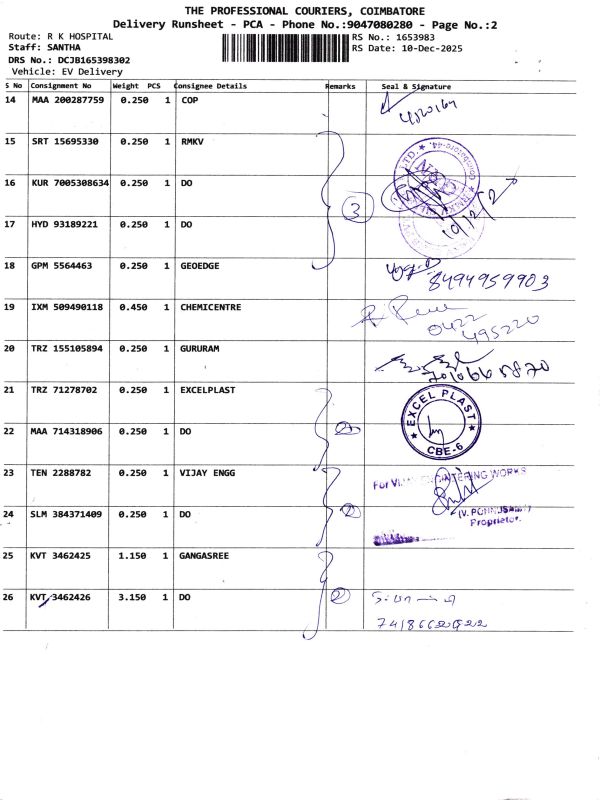 THE PROFESSIONAL COURIERS, COIMBATORE
Delivery Runsheet - PCA - Phone No.:9047080280 - Page No.:2
Route: R K HOSPITAL RS No.: 1653983
Staff: SANTHA RS Date: 10-Dec-2025
DRS No.: DCJB165398302
Vehicle: EV Delivery
S No Consignment No Weight PCS Consignee Details Remarks Seal & Signature
14 MAA 200287759 0.250 1 COP
15 SRT 15695330 0.250 1 RMKV
16 KUR 7005308634 0.250 1 DO
3
10/12/2
17 HYD 93189221 0.250 1 DO
18 GPM 5564463 0.250 1 GEOEDGE
8494959903
19 IXM 509490118 0.450 1 CHEMICENTRE
0422
495220
20 TRZ 155105894 0.250 1 GURURAM
21 TRZ 71278702 0.250 1 EXCELPLAST
EXCEL PLAST
CBE-6
22 MAA 714318906 0.250 1 DO 2
23 TEN 2288782 0.250 1 VIJAY ENGG
For VIJAY ENGINEERING WORKS
24 SLM 384371409 0.250 1 DO 2
(V. PONNUSAMY)
Proprietor.
25 KVT 3462425 1.150 1 GANGASREE
26 KVT 3462426 3.150 1 DO 2